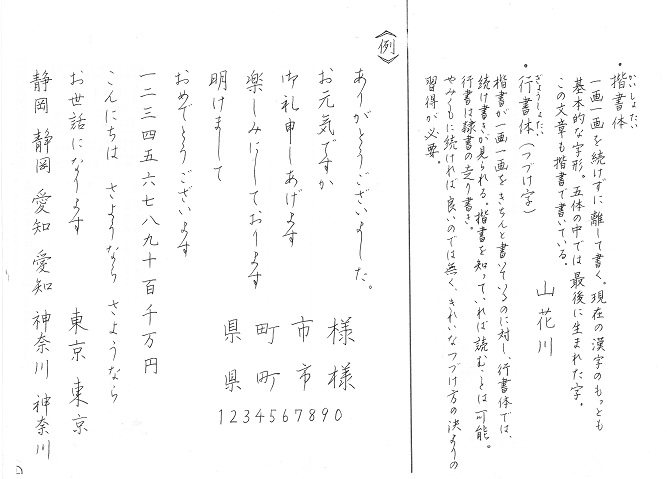 ・楷書体
かいしょたい
一画一画を続けずに離して書く。現在の漢字のもっとも
基本的な字形。五体の中では最後に生まれた字。
この文章も楷書で書いている。
山花川
・行書体(つづけ字)
ぎょうしょたい
楷書が一画一画をきちんと書いているのに対し、行書体では、
続け書きが見られる。楷書を知っていれば読むことは可能。
行書は隷書の走り書き。
やみくもに続ければ良いのでは無く、きれいなつづけ方の決まりの
習得が必要。
《例》
ありがとうございました。
お元気ですか
御礼申しあげます
楽しみにしております
明けまして
おめでとうございます
一二三四五六七八九十百千万円
こんにちは さようなら さようなら
お世話になります 東京 東京
静岡 静岡 愛知 愛知 神奈川 神奈川
様 様
市 市
町 町
県 県
1234567890